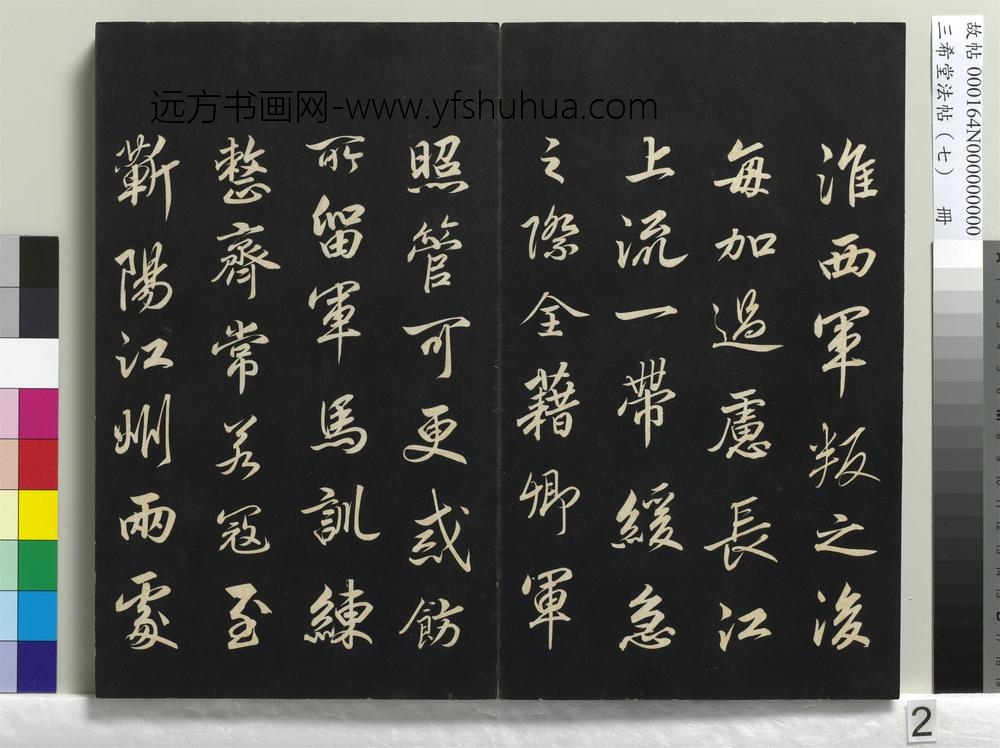 淮西軍叛之後
每加過慮長江
上流一帶緩急
之際全藉卿軍
照管可更戒飭
所留軍馬訓練
整齊常若寇至
蘄陽江州兩處
远方书画网-www.yfshuhua.com
故帖 000164N000000000
三希堂法帖（七） 冊
2